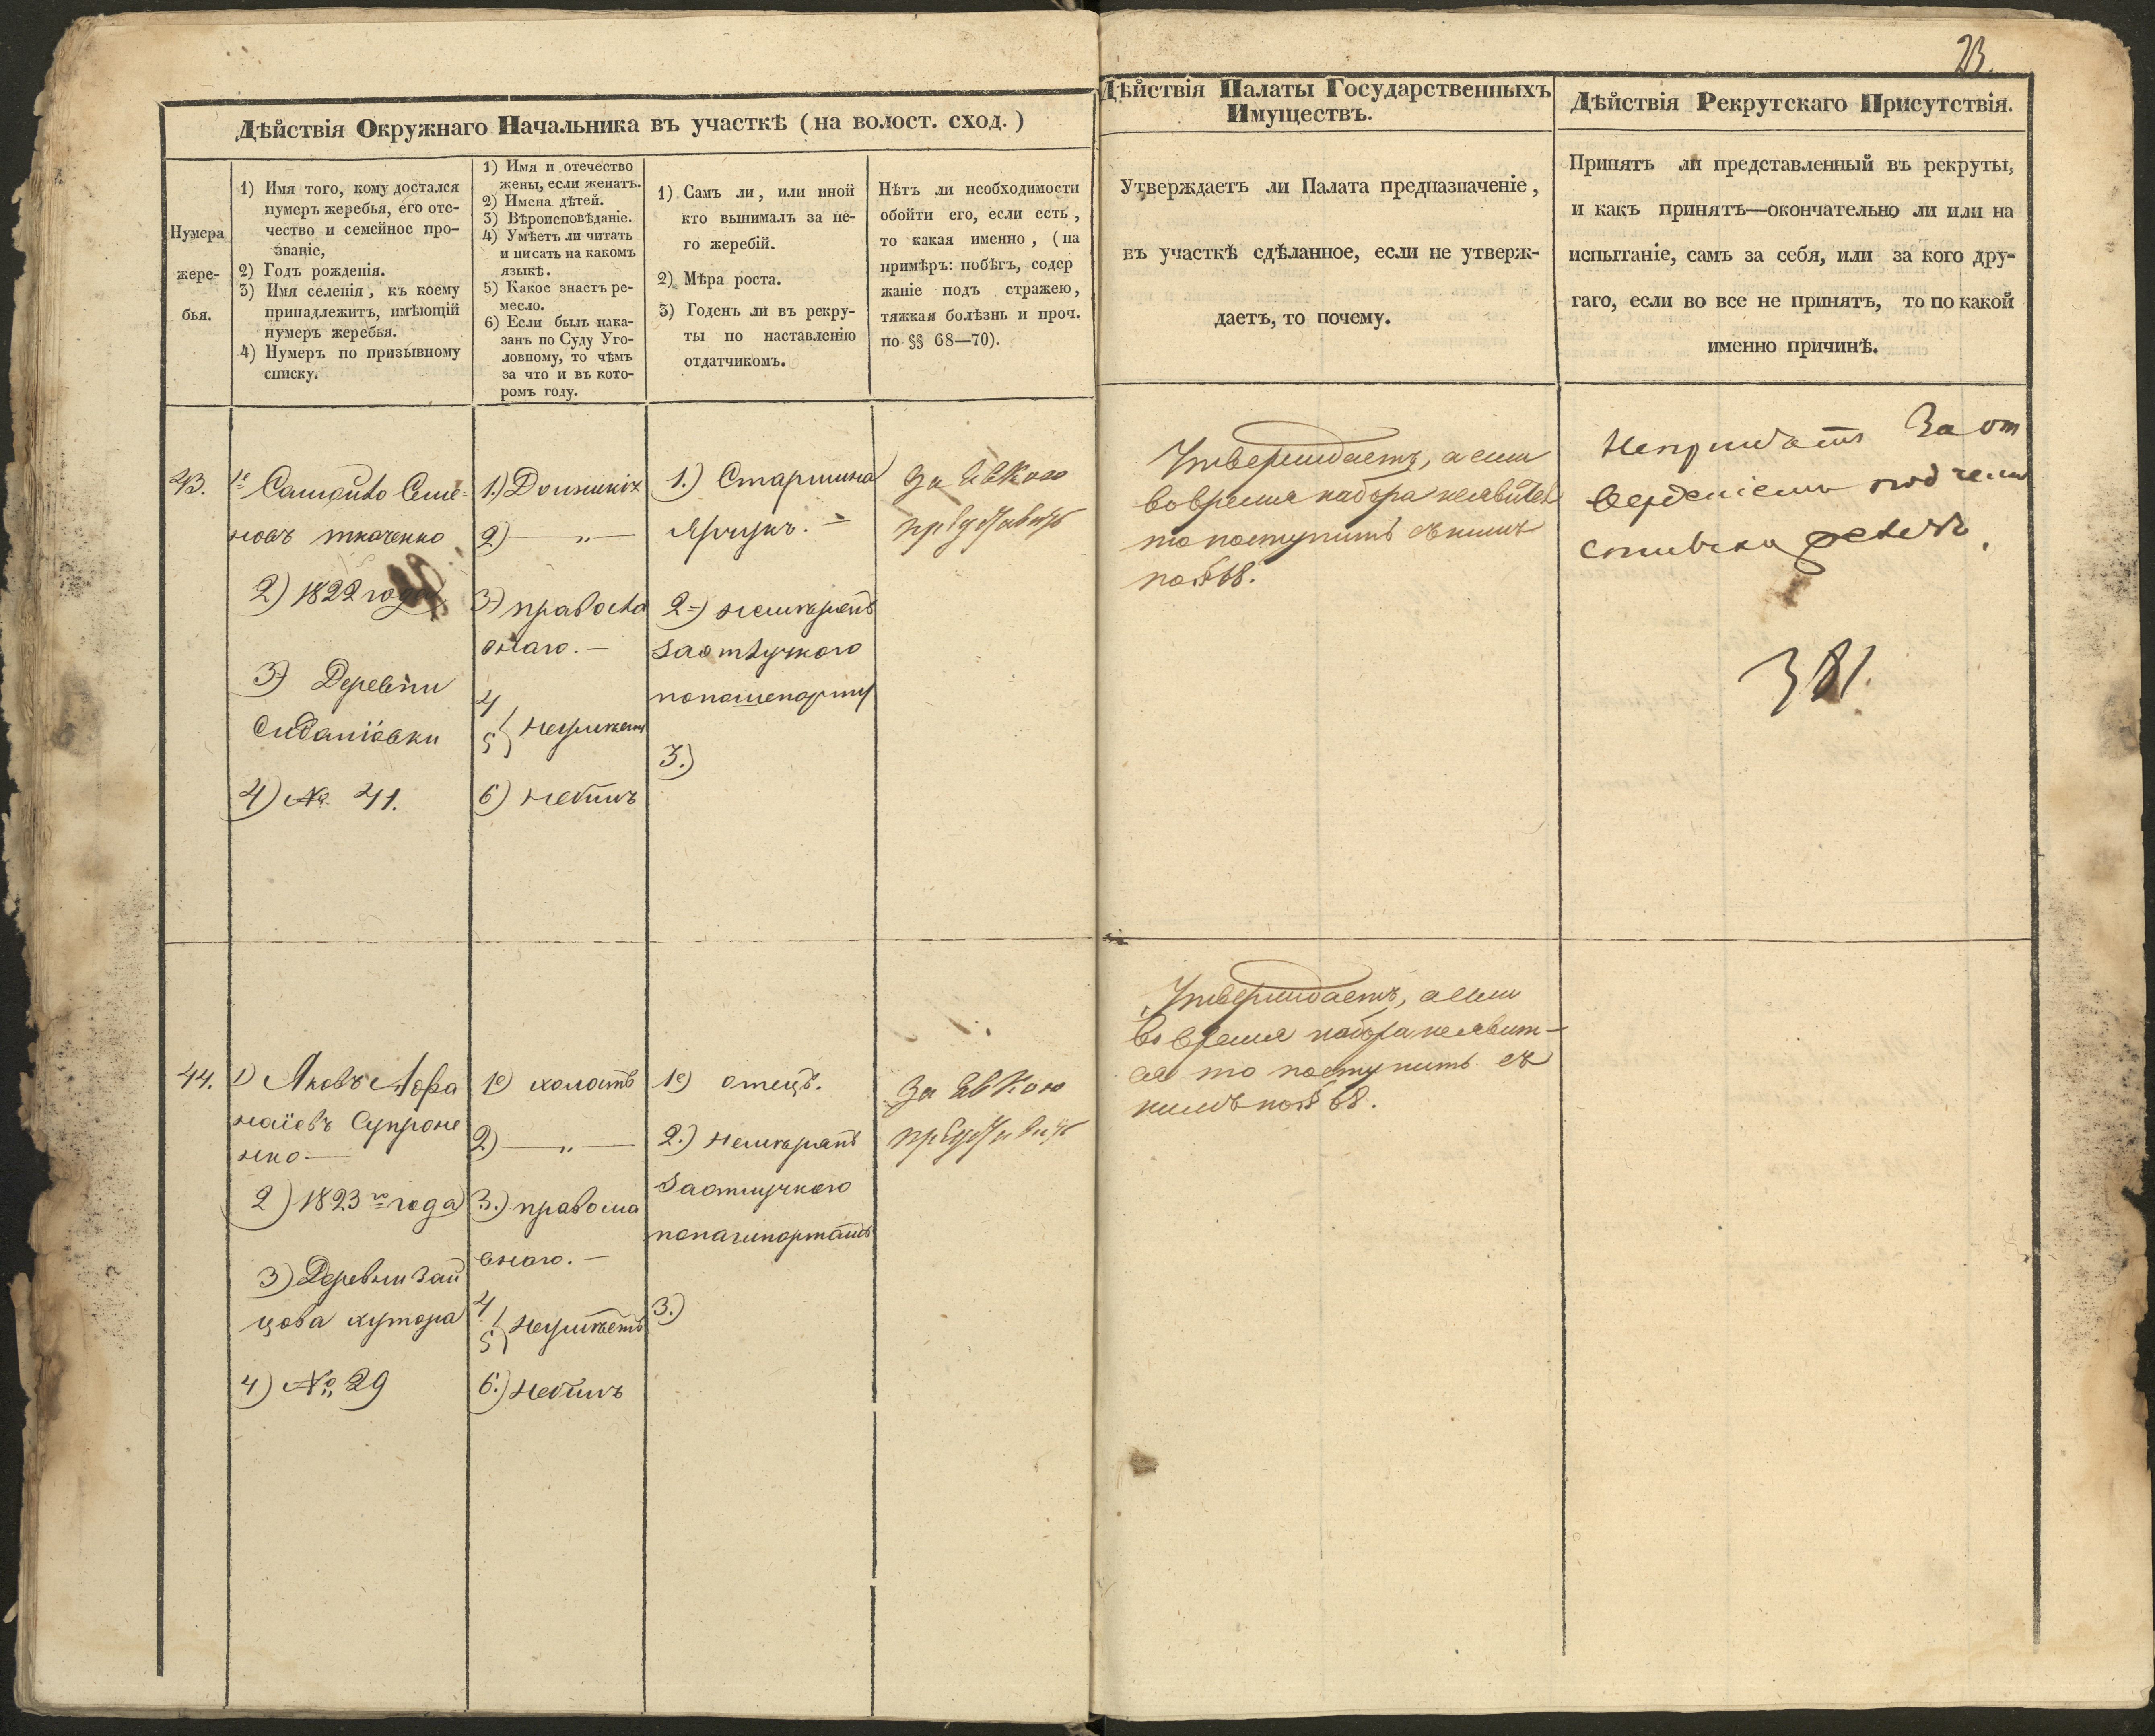 23.
Дѣйствія Окружнаго Начальника въ участкѣ (на волост. сход.)
Нумера
жере-
бья.
1) Имя того, кому достался
нумеръ жеребья, его оте-
чество и семейное про-
званіе,
2) Годъ рожденія.
3) Имя селенія, къ коему
принадлежитъ, имѣющій
нумеръ жеребья.
4) Нумеръ по призывному
списку.
1) Имя и отечество
жены, если женатъ.
2) Имена дѣтей.
3) Вѣроисповѣданіе.
4) Умѣетъ ли читать
и писать на какомъ
языкѣ.
5) Какое знаетъ ре-
месло.
6) Если былъ нака-
занъ по Суду Уго-
ловному, то чѣмъ
за что и въ кото-
ромъ году.
1) Самъ ли, или иной
кто вынималъ за не-
го жеребій.
2) Мѣра роста.
3) Годенъ ли въ рекру-
ты по наставленію
отдатчикомъ.
Нѣтъ ли необходимости
обойти его, если есть,
то какая именно, (на
примѣръ: побѣгъ, содер
жаніе подъ стражею,
тяжкая болѣзнь и проч.
по §§ 68—70).
Дѣйствія Палаты Государственныхъ
Имуществъ.
Утверждаетъ ли Палата предназначеніе,
въ участкѣ сдѣланное, если не утверж-
даетъ, то почему.
Дѣйствія Рекрутскаго Присутствія.
Принятъ ли представленный въ рекруты,
и какъ принятъ—окончательно ли или на
испытаніе, самъ за себя, или за кого дру-
гаго, если во все не принятъ, то по какой
именно причинѣ.
43.
1е Самойло Семе-
новъ ткаченко
2) 1822 года
3) Деревни
4) № 41.
1.)
2) — „ —
3) правосла
внаго. —
4
5) неумѣетъ
6) небылъ
1.) Старшина
2) немѣрянъ
заотлучкою
попашепорту
3.)
За явкою
представить
Утверждаетъ, а если
вовремя набора неявится
то поступить съ нимъ
по § 68.
Непринятъ За от
381.
44.
1) Яковъ Афа
насіевъ Супроне
нко —
2) 1823 го года
3) Деревни Зай
цова хутора
4) № 29
1е) холостъ
2) — „ —
3.) правосла
внаго. —
4
5) неумѣетъ
6.) небылъ
1е) отецъ.
2.) немѣрянъ
заотлучкою
3.)
За явкою
представить
Утверждаетъ, а если
во время набора неявит-
ся то поступить съ
нимъ по § 68.